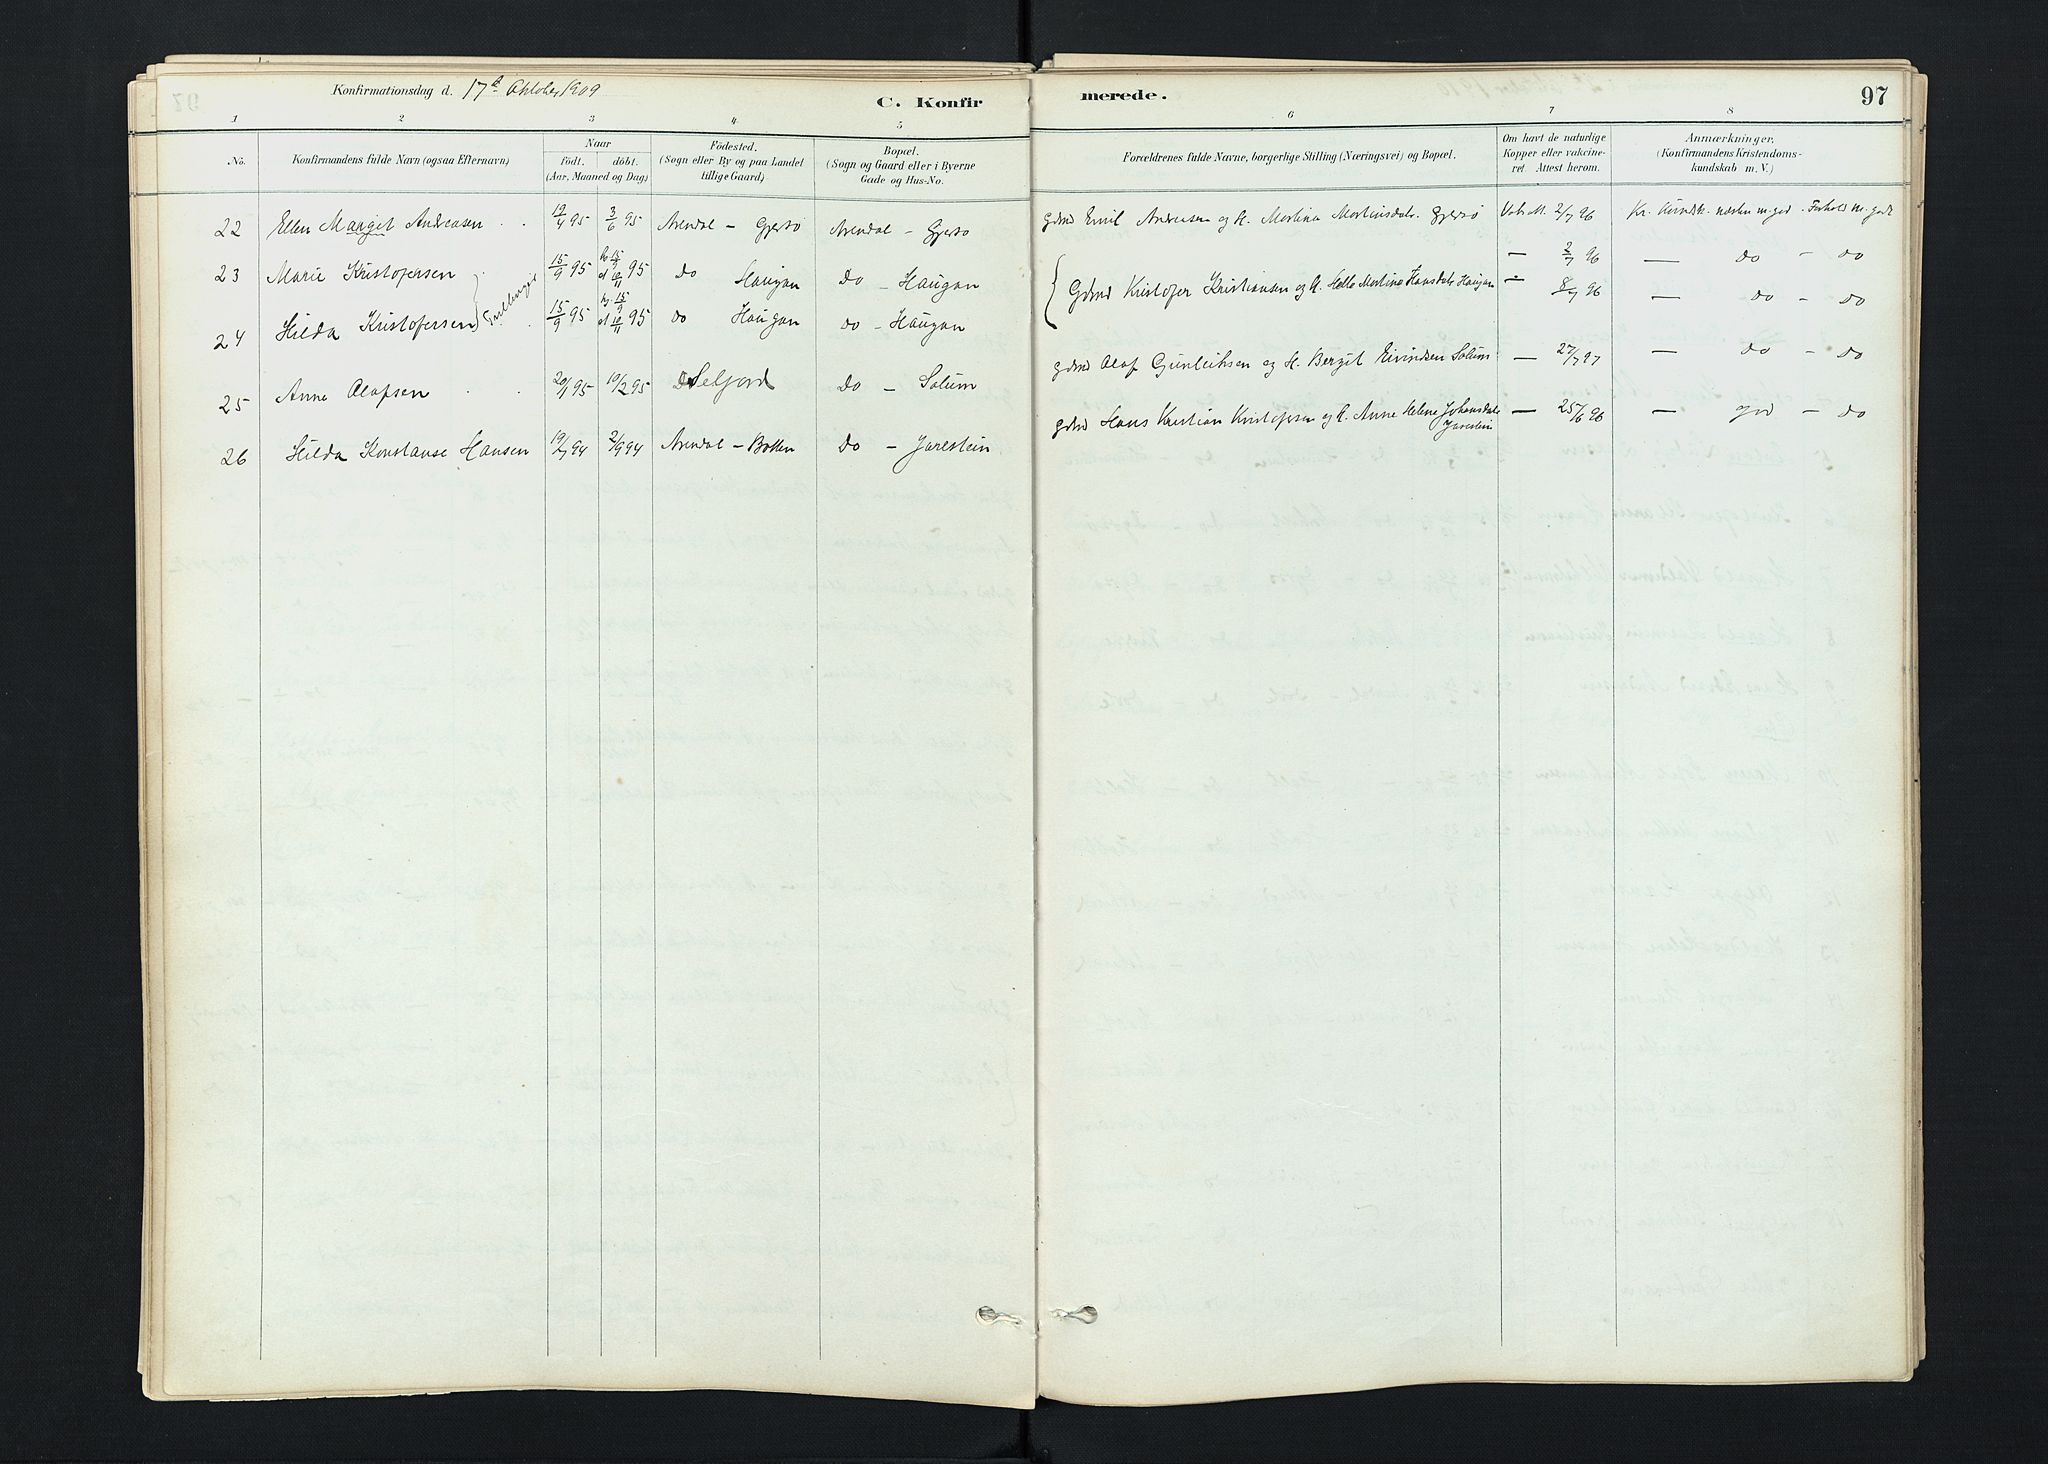 Konfirmationsdag d. 17d Oktober 1909
C. Konfir merede. 97
1 2 3 4 5 6 7 8
No. Konfirmandens fulde Navn (ogsaa Efternavn) Naar födt. döbt. (Aar, Maaned og Dag) Födested. (Sogn eller By og paa Landet tillige Gaard) Bopæl. (Sogn og Gaard eller i Byerne Gade og Hus-No. Forældrenes fulde Navne, borgerlige Stilling (Næringsvei) og Bopæl. Om havt de naturlige Kopper eller vakcineret. Attest herom. Anmærkninger, (Konfirmandens Kristendomskundskab m. V.)
22 Ellen Margit Andreasen 19/4 95 3/6 95 Arendal - Gjersø Arendal - Gjersø Gdmd Emil Andreasen og H. Martina Martinsdatr. Gjersø 2/7 96 Kr. Kundsk. næsten m. god - Forhold m. godt
23 Marie Kristofersen 15/9 95 h. 15/9 d 10/11 95 Do Haugan Do - Haugan { Gdmd Kristofer Kristiansen og H. Helle Martine Hansdatr Haugan — 2/7 96 — do - do
24 Hilda Kristofersen } Tvillinger 15/9 95 hj. 15/9 d 10/11 95 do Haugan do - Haugan — 8/7 96 — do - do
25 Anne Olafsen 20/1 95 10/2 95 Seljord Do - Solum Gdmd Olaf Gunleiksen og H. Bergit Eivindsen Solum — 27/7 97 — do - do
26 Hilda Konstanse Hansen 19/7 94 2/9 94 Arendal - Botten Do - Jarestein Gdmd Hans Kristian Kristofersen og H. Anne Helene Johansdatr Jarestein — 25/6 96 — god - do